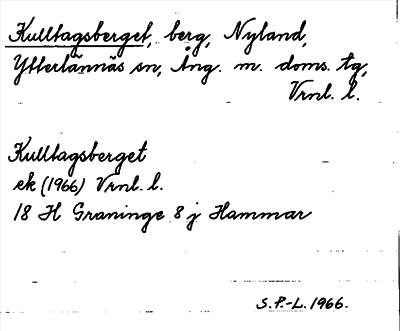 Kulltagsberget, berg, Nyland,
Ytterlännäs sn, Ång. m. doms. tg,
Vrnl. l.
Kulltagsberget
ek (1966) Vrnl. l.
18 H Graninge 8 j Hammar
S.P.-L. 1966.